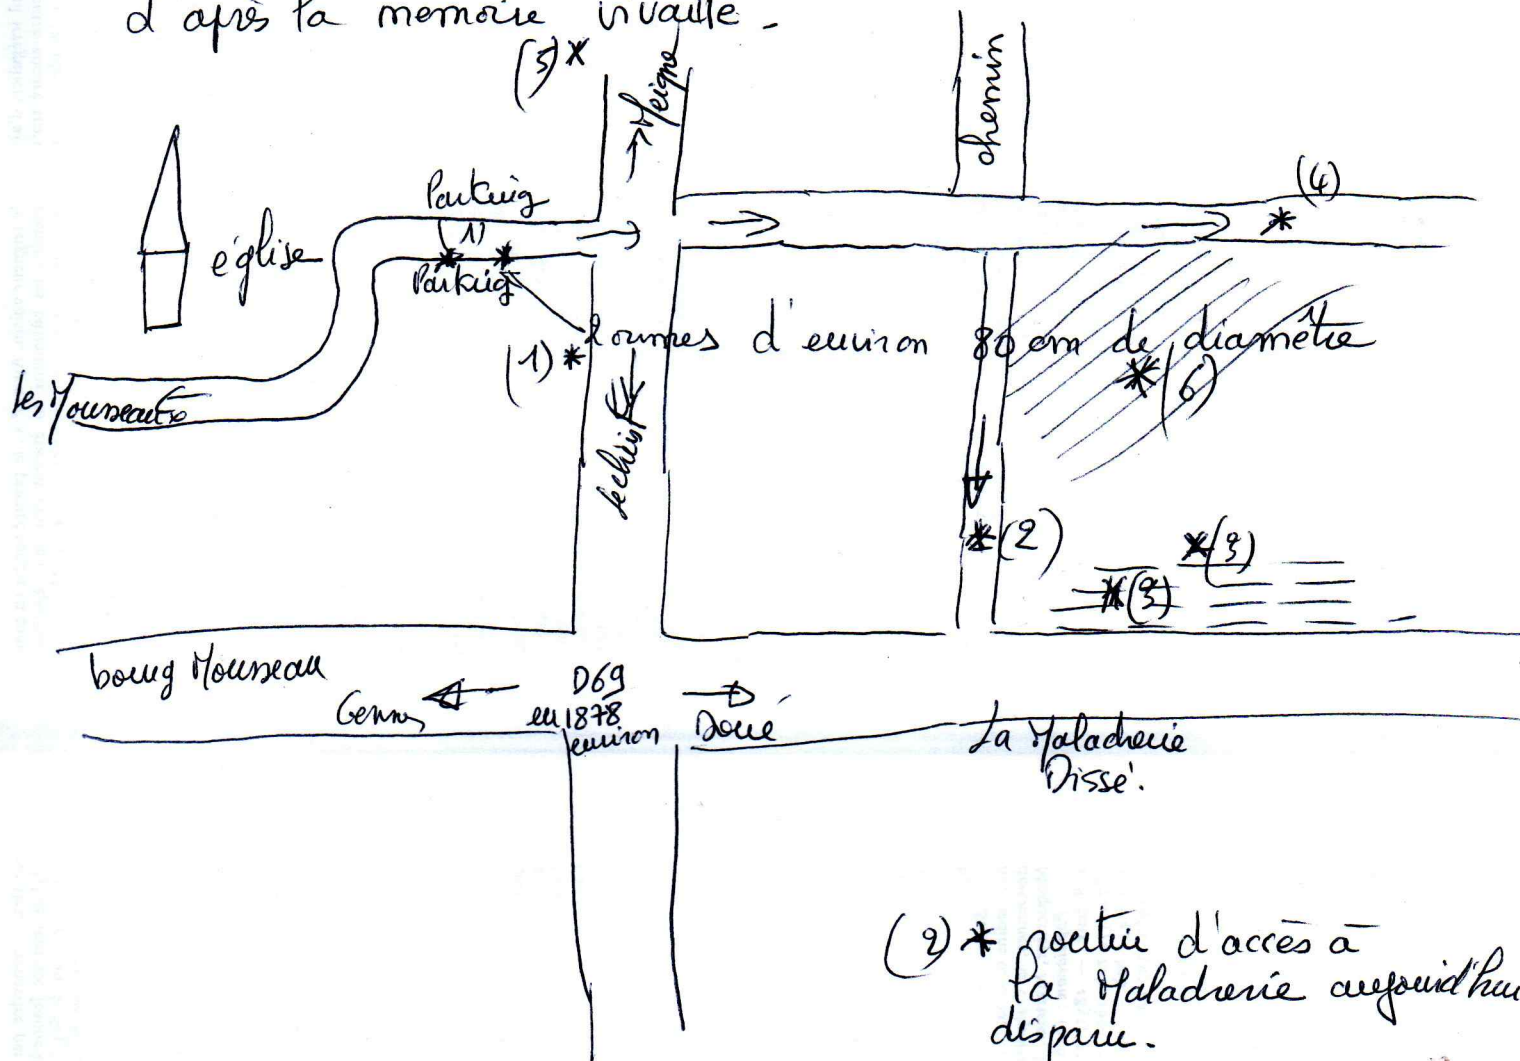 d'après la memoire
(5)*
Meigné
chemin
(4)
*
Parking
1)
église
Parking
2 ormes d'environ 80 cm de diamêtre
(1)*
*(6)
les Mousseaux
le christ
*(2)
*(3)
*(3)
bourg Mousseau
Gennes
D69
en 1878
environ
Doué
La Maladrerie
Dissé.
(2)* routin d'accès à
la Maladrerie aujourd'hui
disparu.